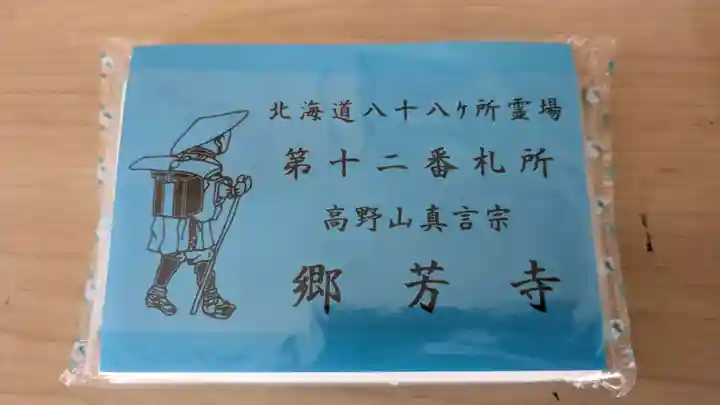 北海道八十八ヶ所霊場
第十二番札所
高野山真言宗
郷芳寺